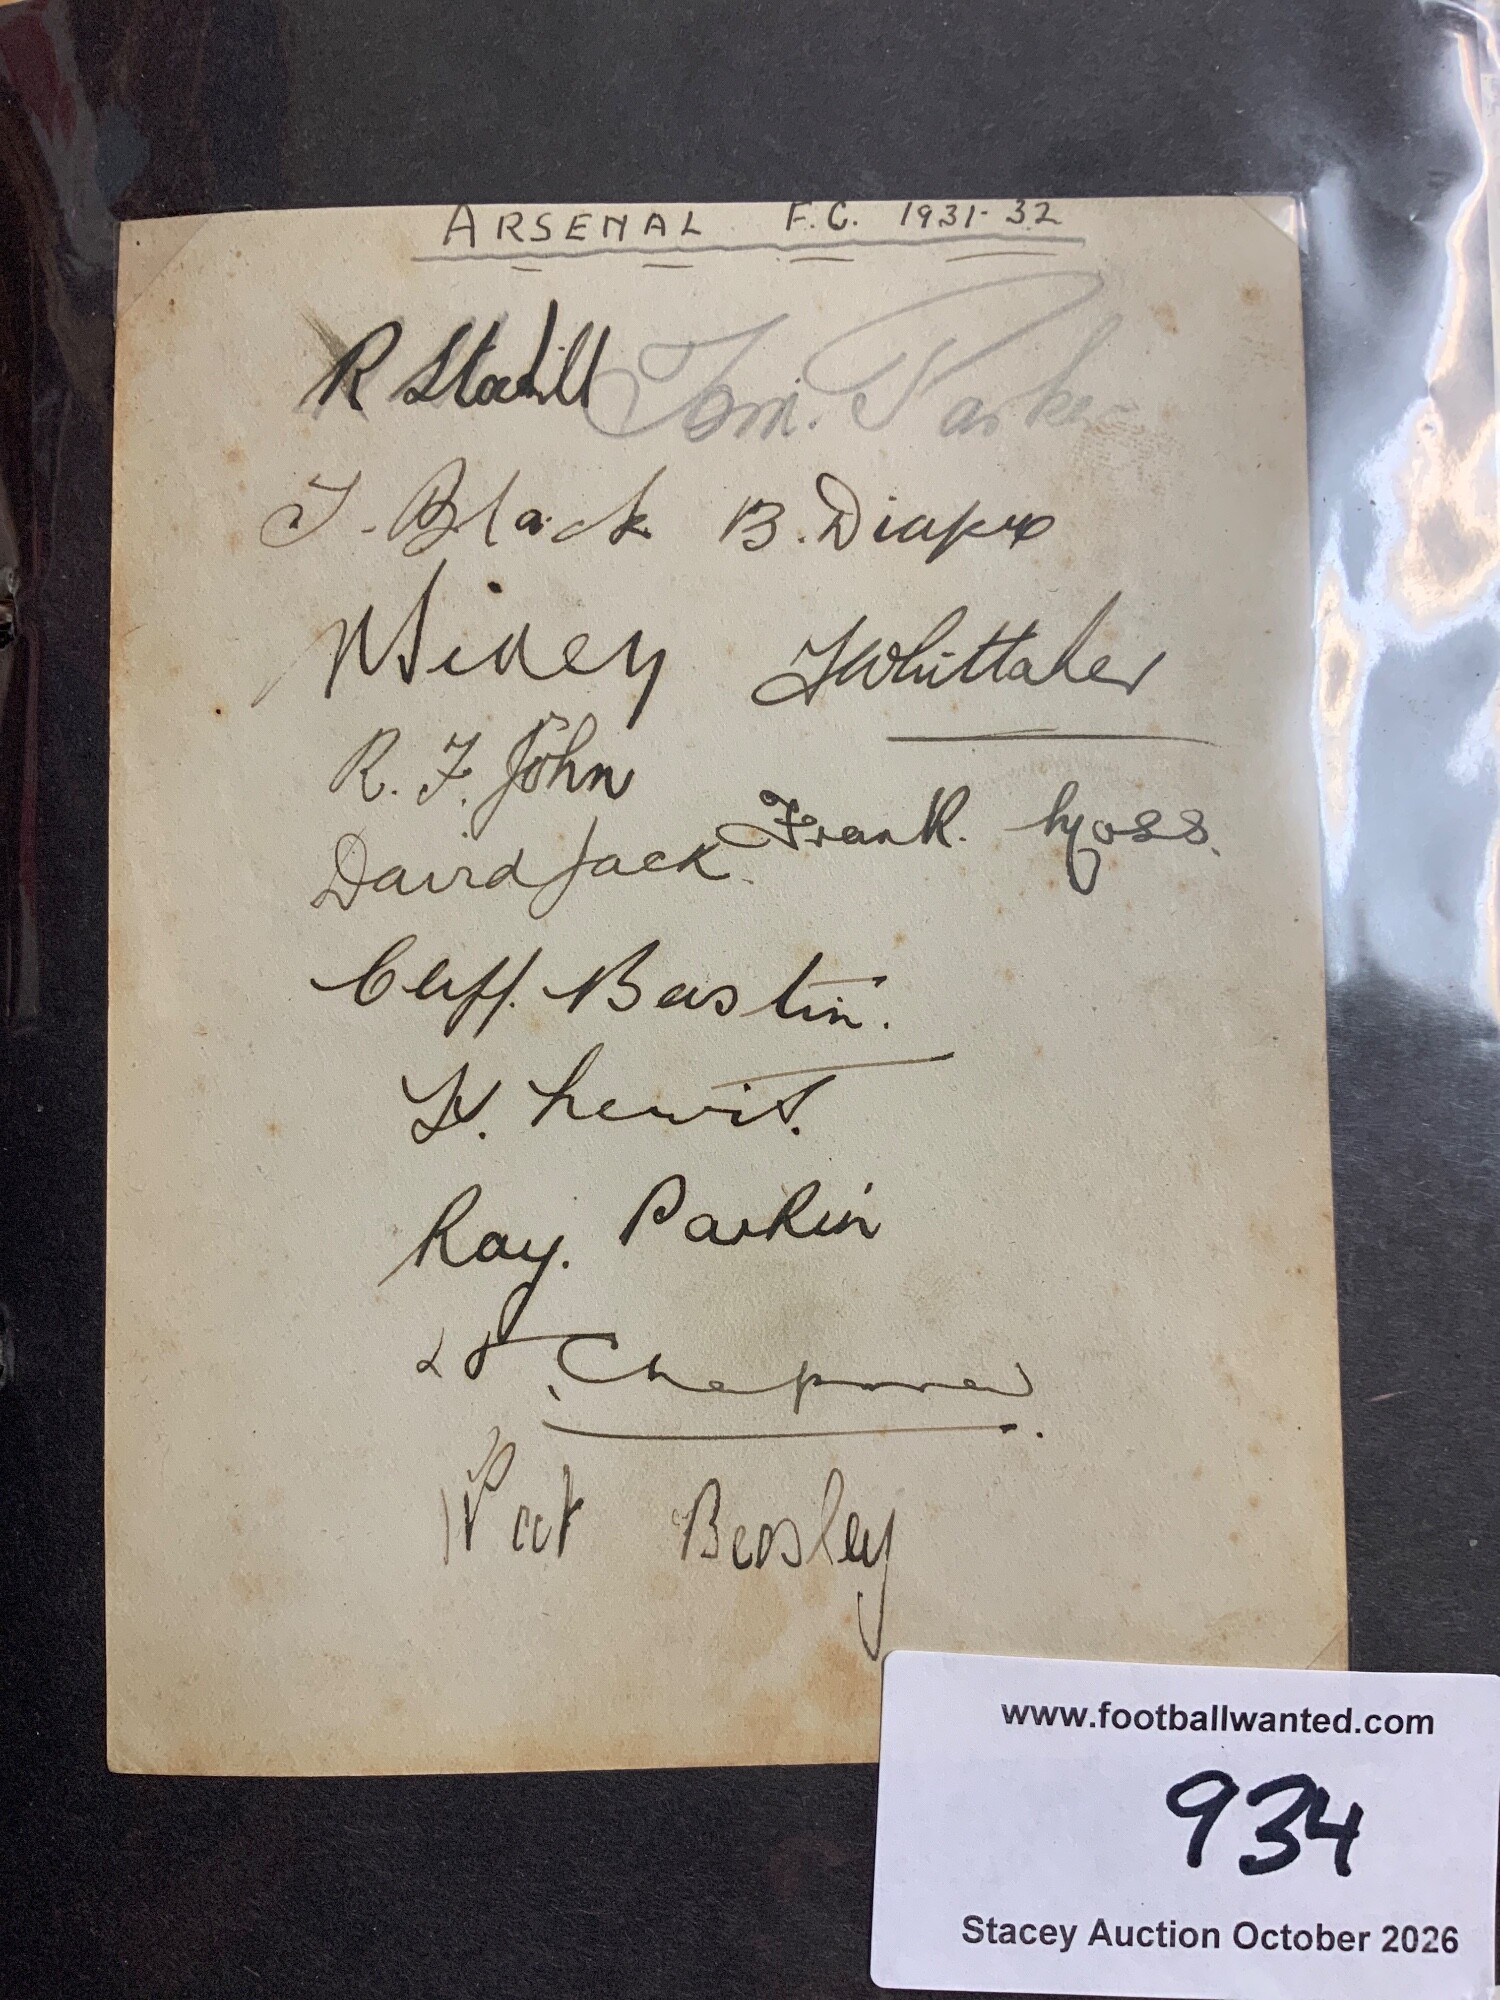 ARSENAL F.C. 1931-32
R Stockill Tom. Parker
T. Black B. Diaper
N Sidey T Whittaker
R. F. John
David Jack. Frank. Moss.
Cliff. Bastin.
Lewis.
Ray. Parkin
Chapman
Pat Beasley
www.footballwanted.com
934
Stacey Auction October 2026